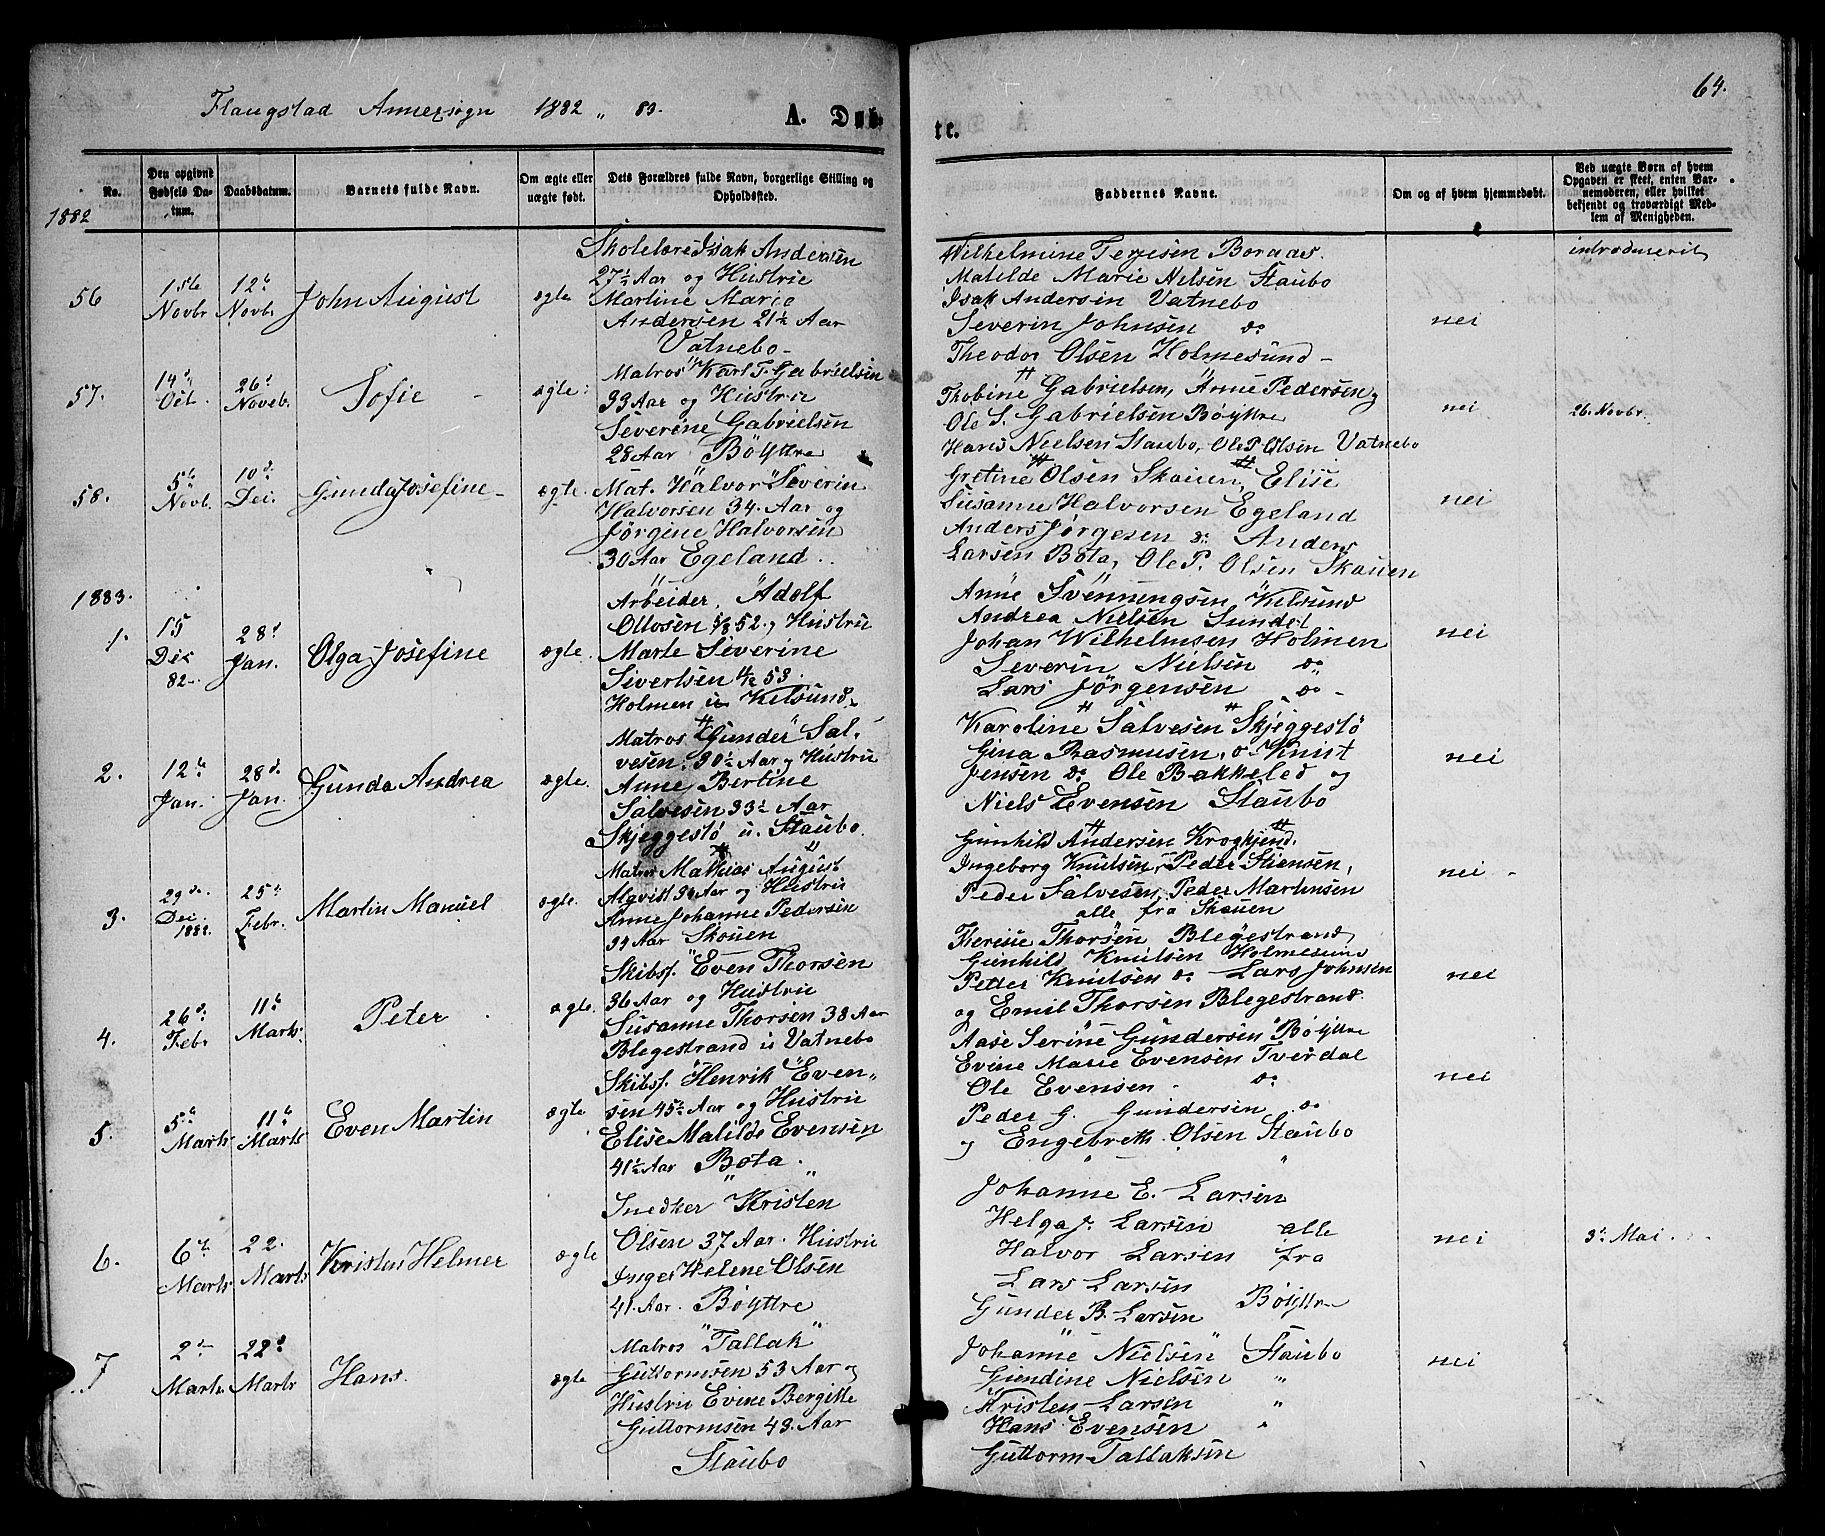 Flangstad Annexsogn 1882 " 83.
A. Døb-
te.
64.
No.
Den opgivne Fødsels Datum.
Daabsdatum.
Barnets fulde Navn.
Om ægte eller uægte født.
Dets Forældres fulde Navn, borgerlige Stilling og Opholdssted.
Faddernes Navne.
Om og af hvem hjemmedøbt.
Ved uægte Børn af hvem Opgaven er skeet, enten Barnemoderen, eller hvilket bekjendt og troværdigt Medlem af Menigheden.
1882
56
Novbr
12te Novbr.
John August
ægte
Isak Andersen
27½ Aar og Hustrie
Martine Marie
Andersen 21½ Aar
Vatnebo
Wilhelmine Terjesen Boraas.
Matilde Marie Nilsen Staubo
Isak Andersen Vatnebo
Severin Johnsen do
Theodor Olsen Holmesund
nei
introduserit
57.
14de Oct.
26d Noveb.
Sofie
ægte
Matros Karl T. Gabrielsen
33 Aar og Hustrie
Severine Gabrielsen
28 Aar Böyttre
Thobine Gabrielsen, Anne Pedersen,
Ole S. Gabrielsen Böyttre
Hans Nielsen Staubo, Ole P. Olsen Vatnebo
nei
26. Novbr.
58.
5te Novb.
10d Dec.
Gunda Josefine
ægte.
Mat. Halvor Severin
Halvorsen 34. Aar og
Jørgine Halvorsen
30 Aar Egeland.
Gretine Olsen Skouen, Elise
Susanne Halvorsen Egeland
Anders Jørgesen do Anders
Larsen Bota, Ole P. Olsen Skouen
nei
1883.
1.
15 Dec 82
28d Jan.
Olga Josefine
ægte.
Arbeider, Adolf
Ottosen 5/8 52. Hustrie
Marte Severine
Sivertsen 53.
Holmen u. Kilsund
Anne Svenningsen Kilsund
Andrea Nielsen Sundet
Johan Wilhelmsen Holmen
Severin Nielsen do
Lars Jørgensen do
nei
2.
12te Jan.
28d Jan.
Gunda Andrea
ægte.
Matros Gunder Sal-
vesen. 30½ Aar og Hustrie
Anne Bertine
Salvesen 33½ Aar
Skjeggestö u. Staubo.
Karoline Salvesen Skjeggestö
Gina Rasmusen, do Knut
Jensen do Ole Bakkeled og
Niels Evensen Staubo
nei
3.
29de Dec. 1882.
25te Febr.
Martin Manuel
ægte.
Matros Mathias August
Algvist 34 Aar og Hustrie
Anne Johanne Pedersen
34 Aar Skouen
Gunhild Andersen
Ingeborg Knutsen, Peder Stiansen,
Peder Salvesen, Peder Martinsen
alle fra Skouen
nei
4.
26d Febr
11te Marts.
Peter
ægte.
Skibsf. Even Thorsen
36 Aar og Hustrie
Susanne Thorsen 38 Aar
Blegestrand u Vatnebo
Therine Thorsen Blegestrand
Gunhild Knutsen Holmesund
Petter Knutsen do Lars Johnsen
og Emil Thorsen Blegestrand.
nei
5.
5te Marts
11te Marts
Even Martin
ægte
Skibsf. Henrik Even-
sen 45½ Aar og Hustrie
Elise Matilde Evensen
41½ Aar Bota.
Aase Serine Gundersen Böyttre
Evine Marie Evensen Tverdal
Ole Evensen do
Peder G. Gundersen do
og Engebreth Olsen Staubo
nei
6.
6te Marts
22. Marts
Kristen Helmer
ægte
Snedker Kristen
Olsen 37 Aar. Hustrie
Inger Helene Olsen
41. Aar. Böyttre
Johanne E. Larsen
Helga J. Larsen alle
Halvor Larsen fra
Lars Larsen
Gunder B. Larsen Böyttre
nei
3d Mai.
7
2den Marts
22de Marts
Hans.
ægte
Matros Tallak
Guttormsen 53 Aar og
Hustrie Evine Bergitte
Guttormsen 43. Aar
Staubo
Johanne Nielsen Staubo
Gundine Nielsen "
Kristen Larsen "
Hans Evensen "
Guttorm Tallaksen
nei